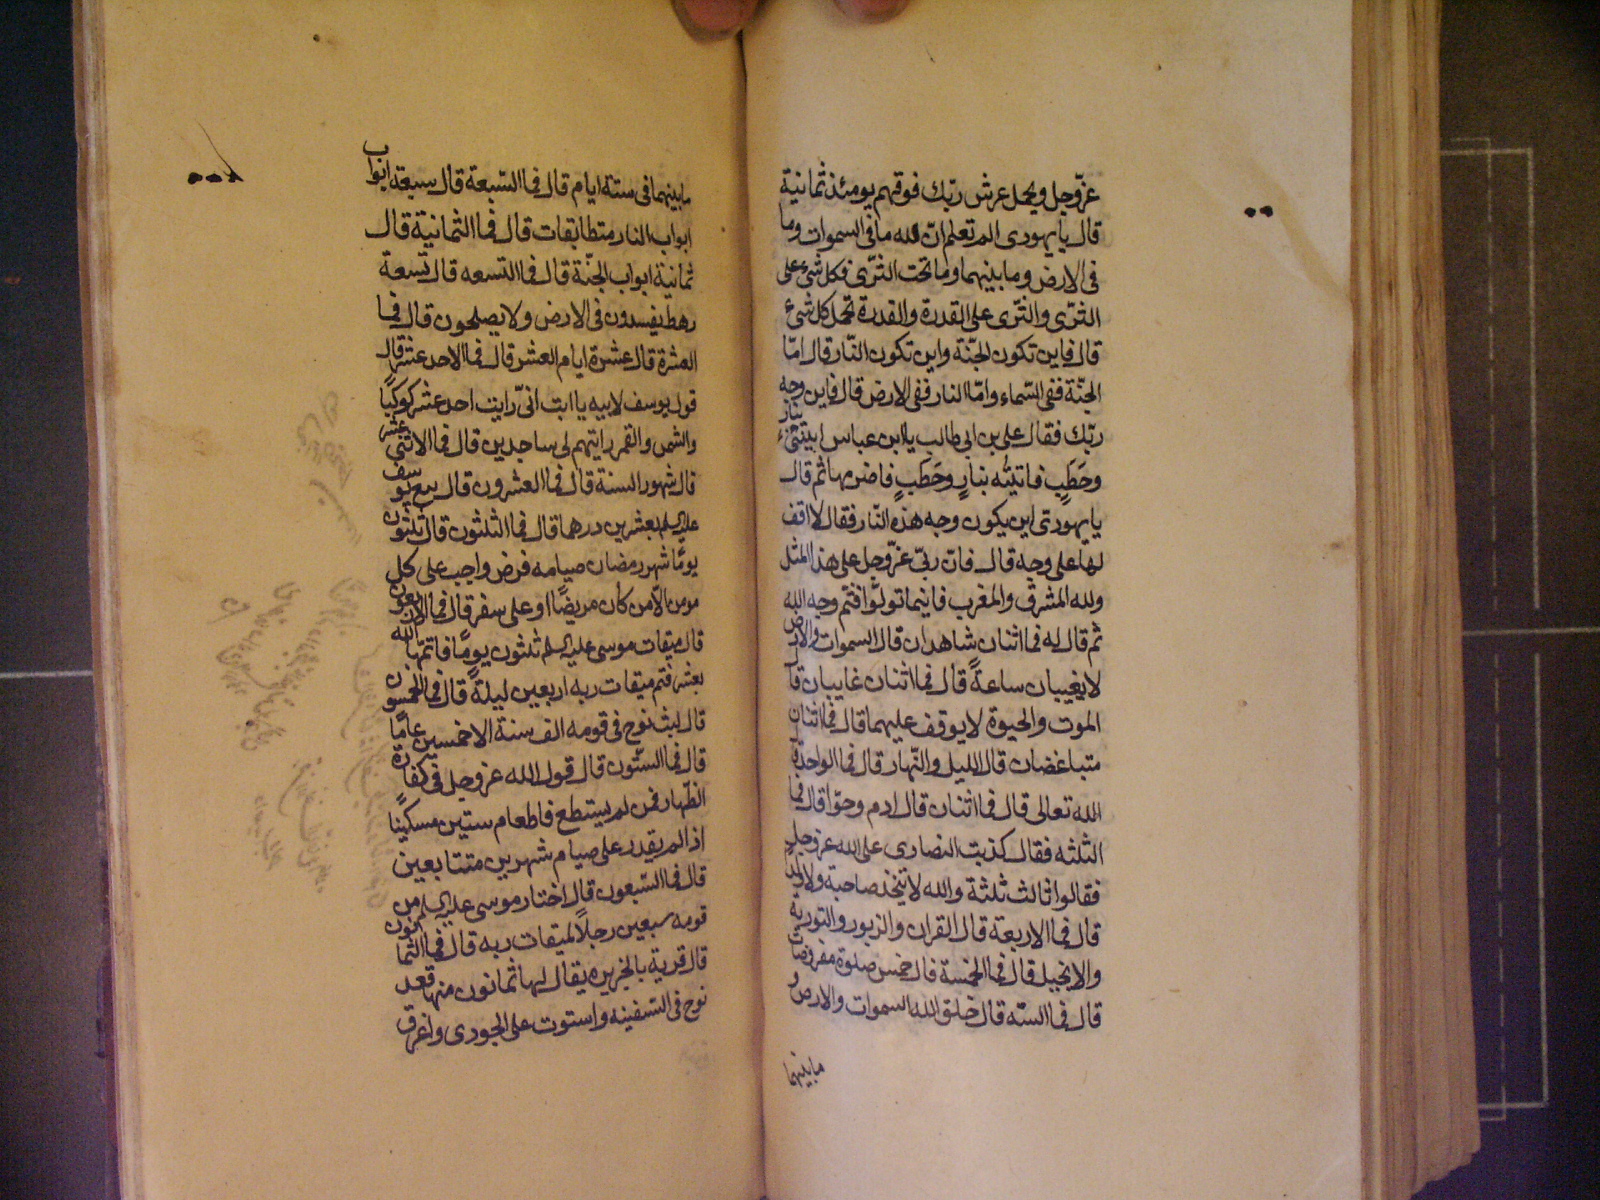 عزّوجل ويحمل عرش ربّك فوقهم يومئذ ثمانية
قال يا يهودى الم تعلم انّ لله ما فى السموات وما
فى الارض وما بينهما وما تحت الثرّى فكل شئ على
الثرّى والثرّى على القدرة والقدرة تحمل كل شئ
قال فاين تكون الجنّة واين تكون النّار قال امّا
الجنّة ففى السّماء وامّا النار ففى الارض قال فاين وجه
ربّك فقال على بن ابى طالب يا ابن عباس ايتنى بنار
وحَطَبٍ فاتيتُه بنارٍ وحَطَبٍ فاضرمها ثم قال
يا يهودى اين يكون وجه هذه النّار فقال لا اقف
لها على وجه قال فانّ ربّى عزّوجل على هذا المثل
ولله المشرق والمغرب فاينما تولّوا فثم وجه الله
ثم قال له فما اثنان شاهدان قال السموات والارض
لا يغيبان ساعةً قال فما اثنان غايبان قال
الموت والحيوة لا يوقف عليهما قال فما اثنان
متباغضان قال الليل والنّهار قال فما الواحدة
الله تعالى قال فما اثنان قال ادم وحوّا قال فما
الثلثه فقال كذبت النصارى على الله عزوجل
فقالوا ثالث ثلثة والله لا يتخذ صاحبة ولا ولدا
قال فما الاربعة قال القران والزبور والتورية
والانجيل قال فما الخمسة قال خمس صلوة مفروضات
قال فما السته قال خلق الله السموات والارض و
ما بينهما
ما بينهما فى ستة ايام قال فما السّبعة قال سبعة ابواب
ابواب النار متطابقات قال فما الثمانية قال
ثمانية ابواب الجنّة قال فما التسعه قال تسعة
رهط يفسدون فى الارض ولا يصلحون قال فما
العشرة قال عشرة ايام العشر قال فما الاحد عشر قال
قول يوسف لابيه يا ابت انّى رايت احد عشر كوكبًا
والشمس والقمر رايتهم لى ساجدين قال فما الاثنى عشر
قال شهور السنة قال فما العشرون قال بيع يوسف
عليه السلم بعشرين درهما قال فما الثلثون قال ثلثون
يومًا شهر رمضان صيامه فرض واجب على كل
مومن الا من كان مريضًا او على سفر قال فما الاربعون
قال ميقات موسى عليه السلم ثلثون يومًا فاتمّها الله
بعشر فتم ميقات ربه اربعين ليلة قال فما الخمسون
قال لبث نوح فى قومه الف سنة الا خمسين عامًا
قال فما السّتون قال قول الله عزوجل فى كفارة
الظّهار فمن لم يستطع فاطعام ستين مسكينًا
اذا لم يقدر على صيام شهرين متتابعين
قال فما السّبعون قال اختار موسى عليه السلم من
قومه سبعين رجلاً لميقات ربه قال فما الثمانون
قال قرية بالجزيره يقال لها ثمانون منها قعد
نوح فى السّفينه واستوت على الجودى واغرق